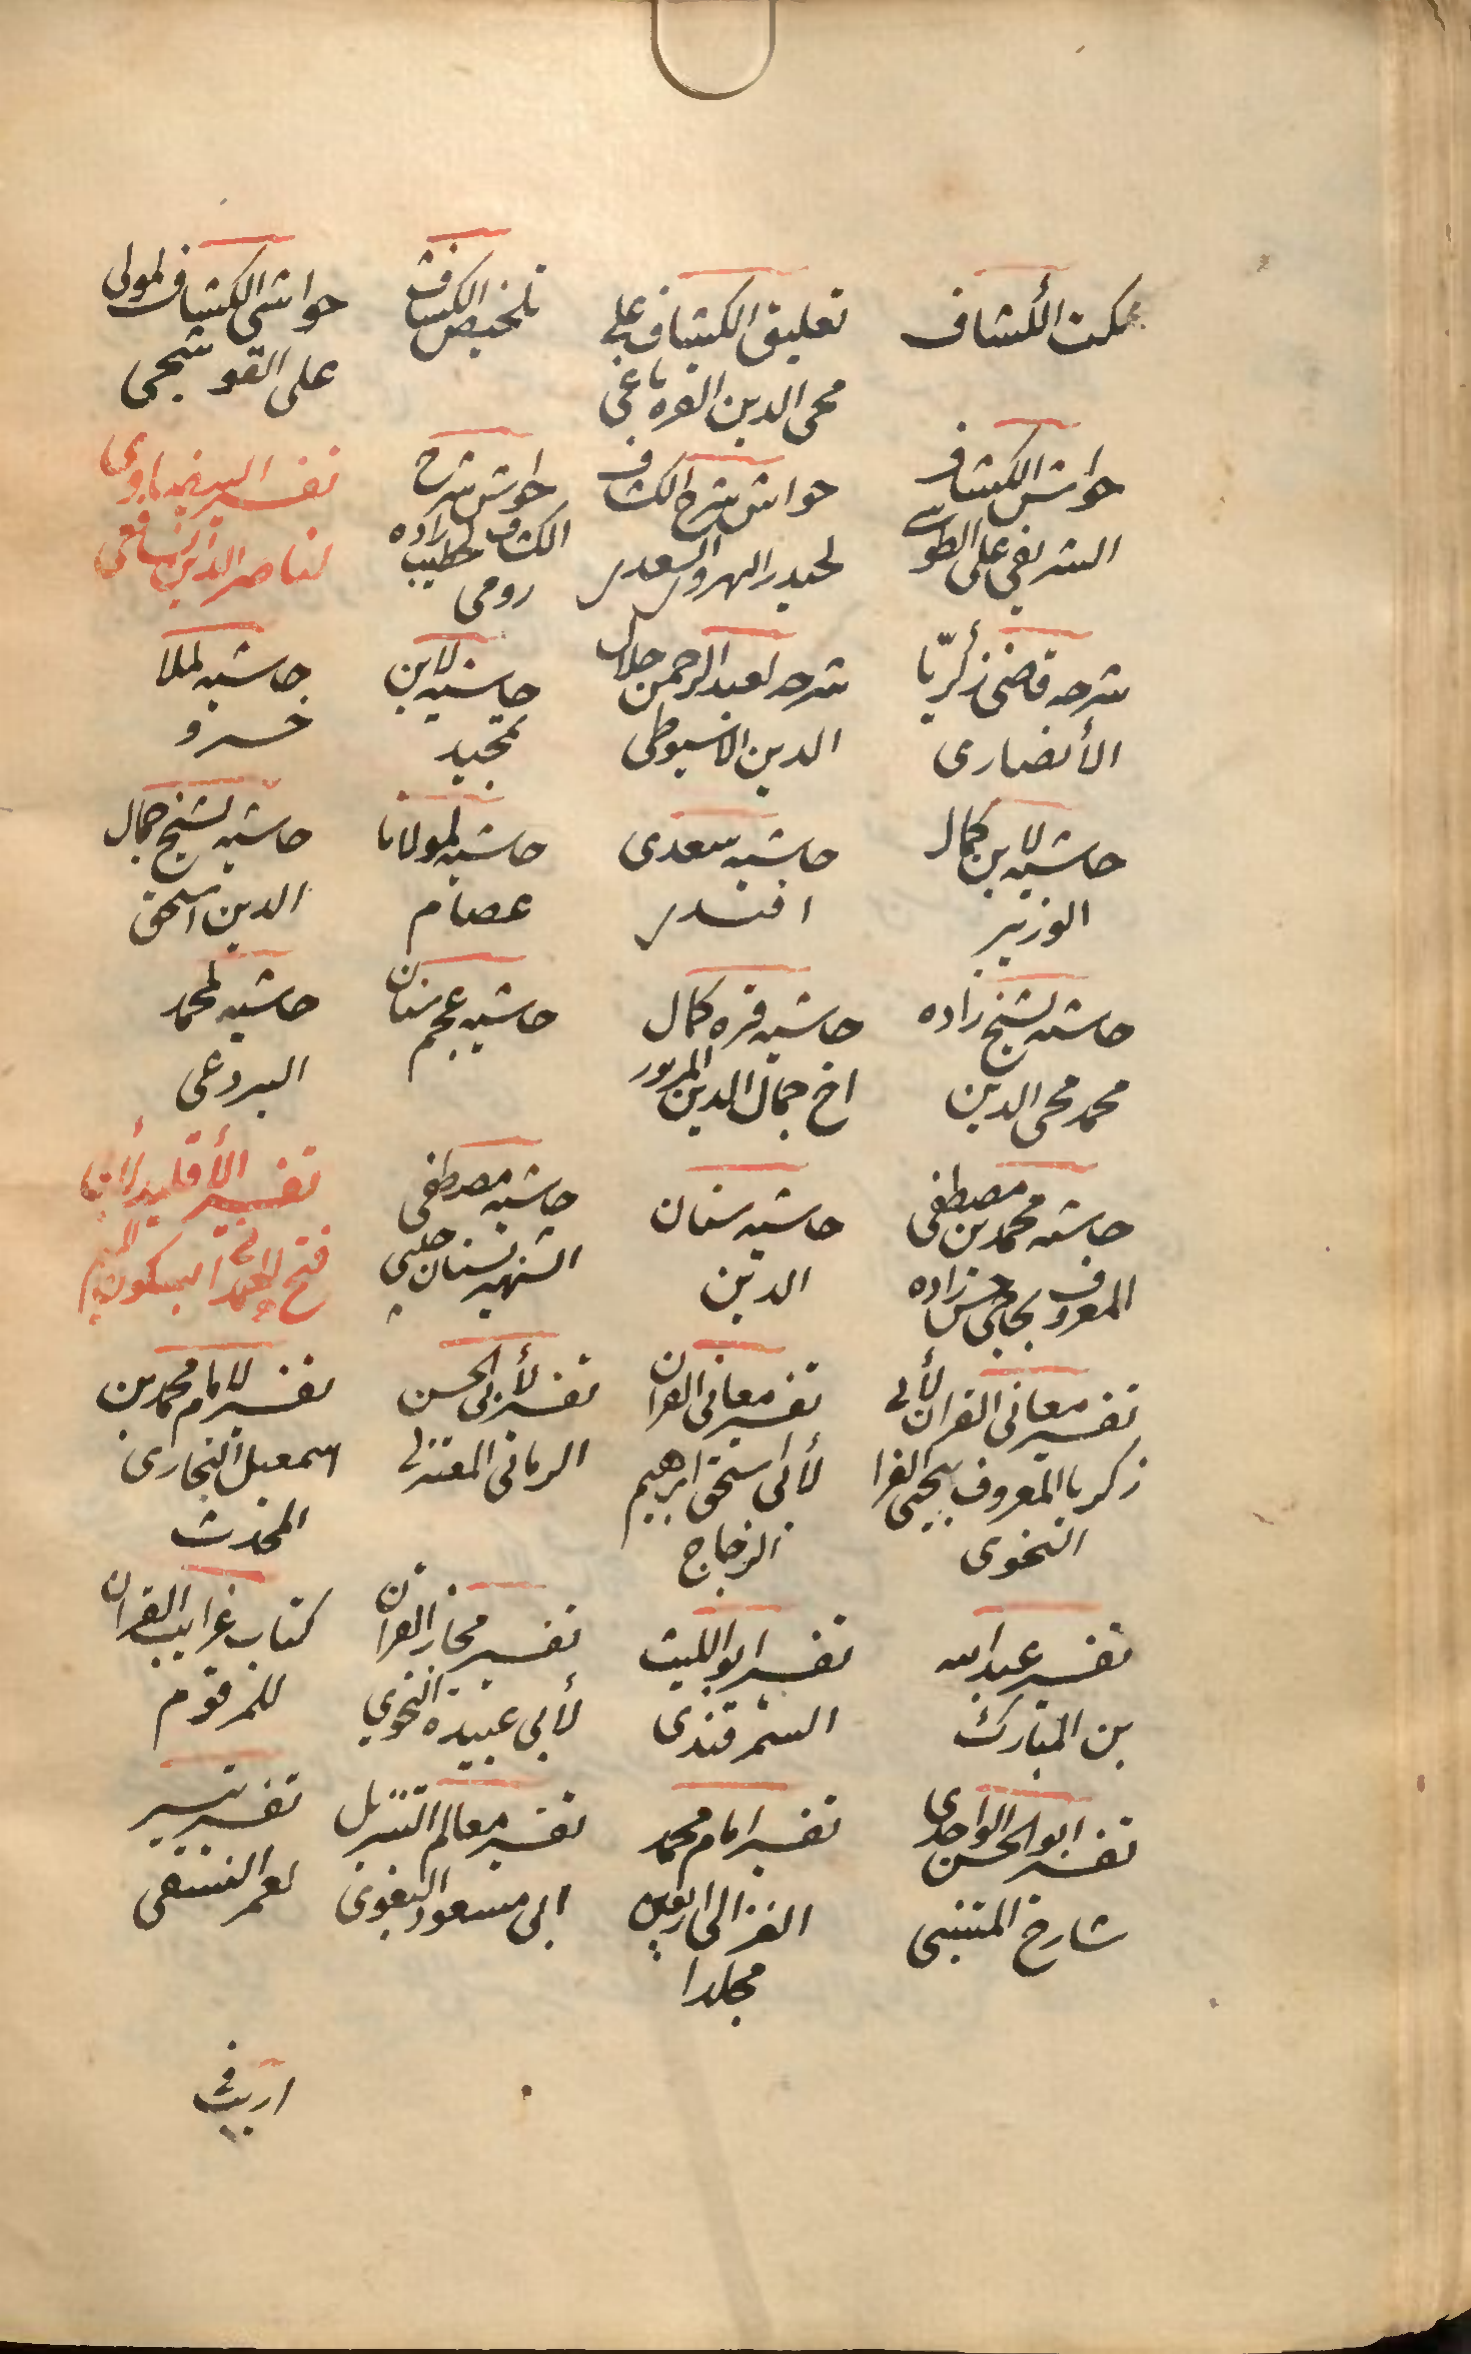 نكت الكشاف
تعليق الكشاف على
محى الدين القره باغى
تلخيص الكشاف
حواشى الكشاف لمولى
على القوشجى
حواشى الكشاف
الشريفى على الطوسى
حواشى شرح الكشاف
لحيدر الهروى السعدى
حواشى شرح
الكشاف لخطيب زاده
رومى
تفسير البيضاوى
لناصر الدين الشافعى
شرحه قاضى زكريّا
الأنصارى
شرحه لعبد الرحمن جلال
الدين الاسيوطى
حاشيه لابن
تمجيد
حاشيه لملا
خسرو
حاشيه لابن كمال
الوزير
حاشيه سعدى
افندى
حاشيه لمولانا
عصام
حاشيه لشيخ جمال
الدين اسحق
حاشيه لشيخ زاده
محمد محى الدين
حاشيه قره كمال
اخ جمال الدين المزبور
حاشيه عجم سنان
حاشيه لمحمد
البروعى
حاشيه محمد بن مصطفى
المعروف بحاجى حسن زاده
حاشيه سنان
الدين
حاشيه مصطفى
الشهير بسنان چلبى
تفسير الأقليد لأبى
فتح
تفسير معانى القران لأبى
زكريا المعروف بيحيى الفرا
النحوى
تفسير معانى القران
لأبى اسحق ابرهيم
الزجاج
تفسير لأبى الحسن
الرمانى المعتزلى
تفسير لامام محمد بن
اسمعيل البخارى
المحدث
تفسير عبد الله
بن المبارك
تفسير ابو الليث
السمرقندى
تفسير مجاز القران
لأبى عبيدة النحوي
كتاب غرايب القران
للمرقوم
تفسير ابو الحسن الواحدى
شارح المتنبى
تفسير امام محمد
الغزالى اربعين
مجلدا
تفسير معالم التنزيل
ابى مسعود البغوى
تفسير تيسير
لعمر النسفى